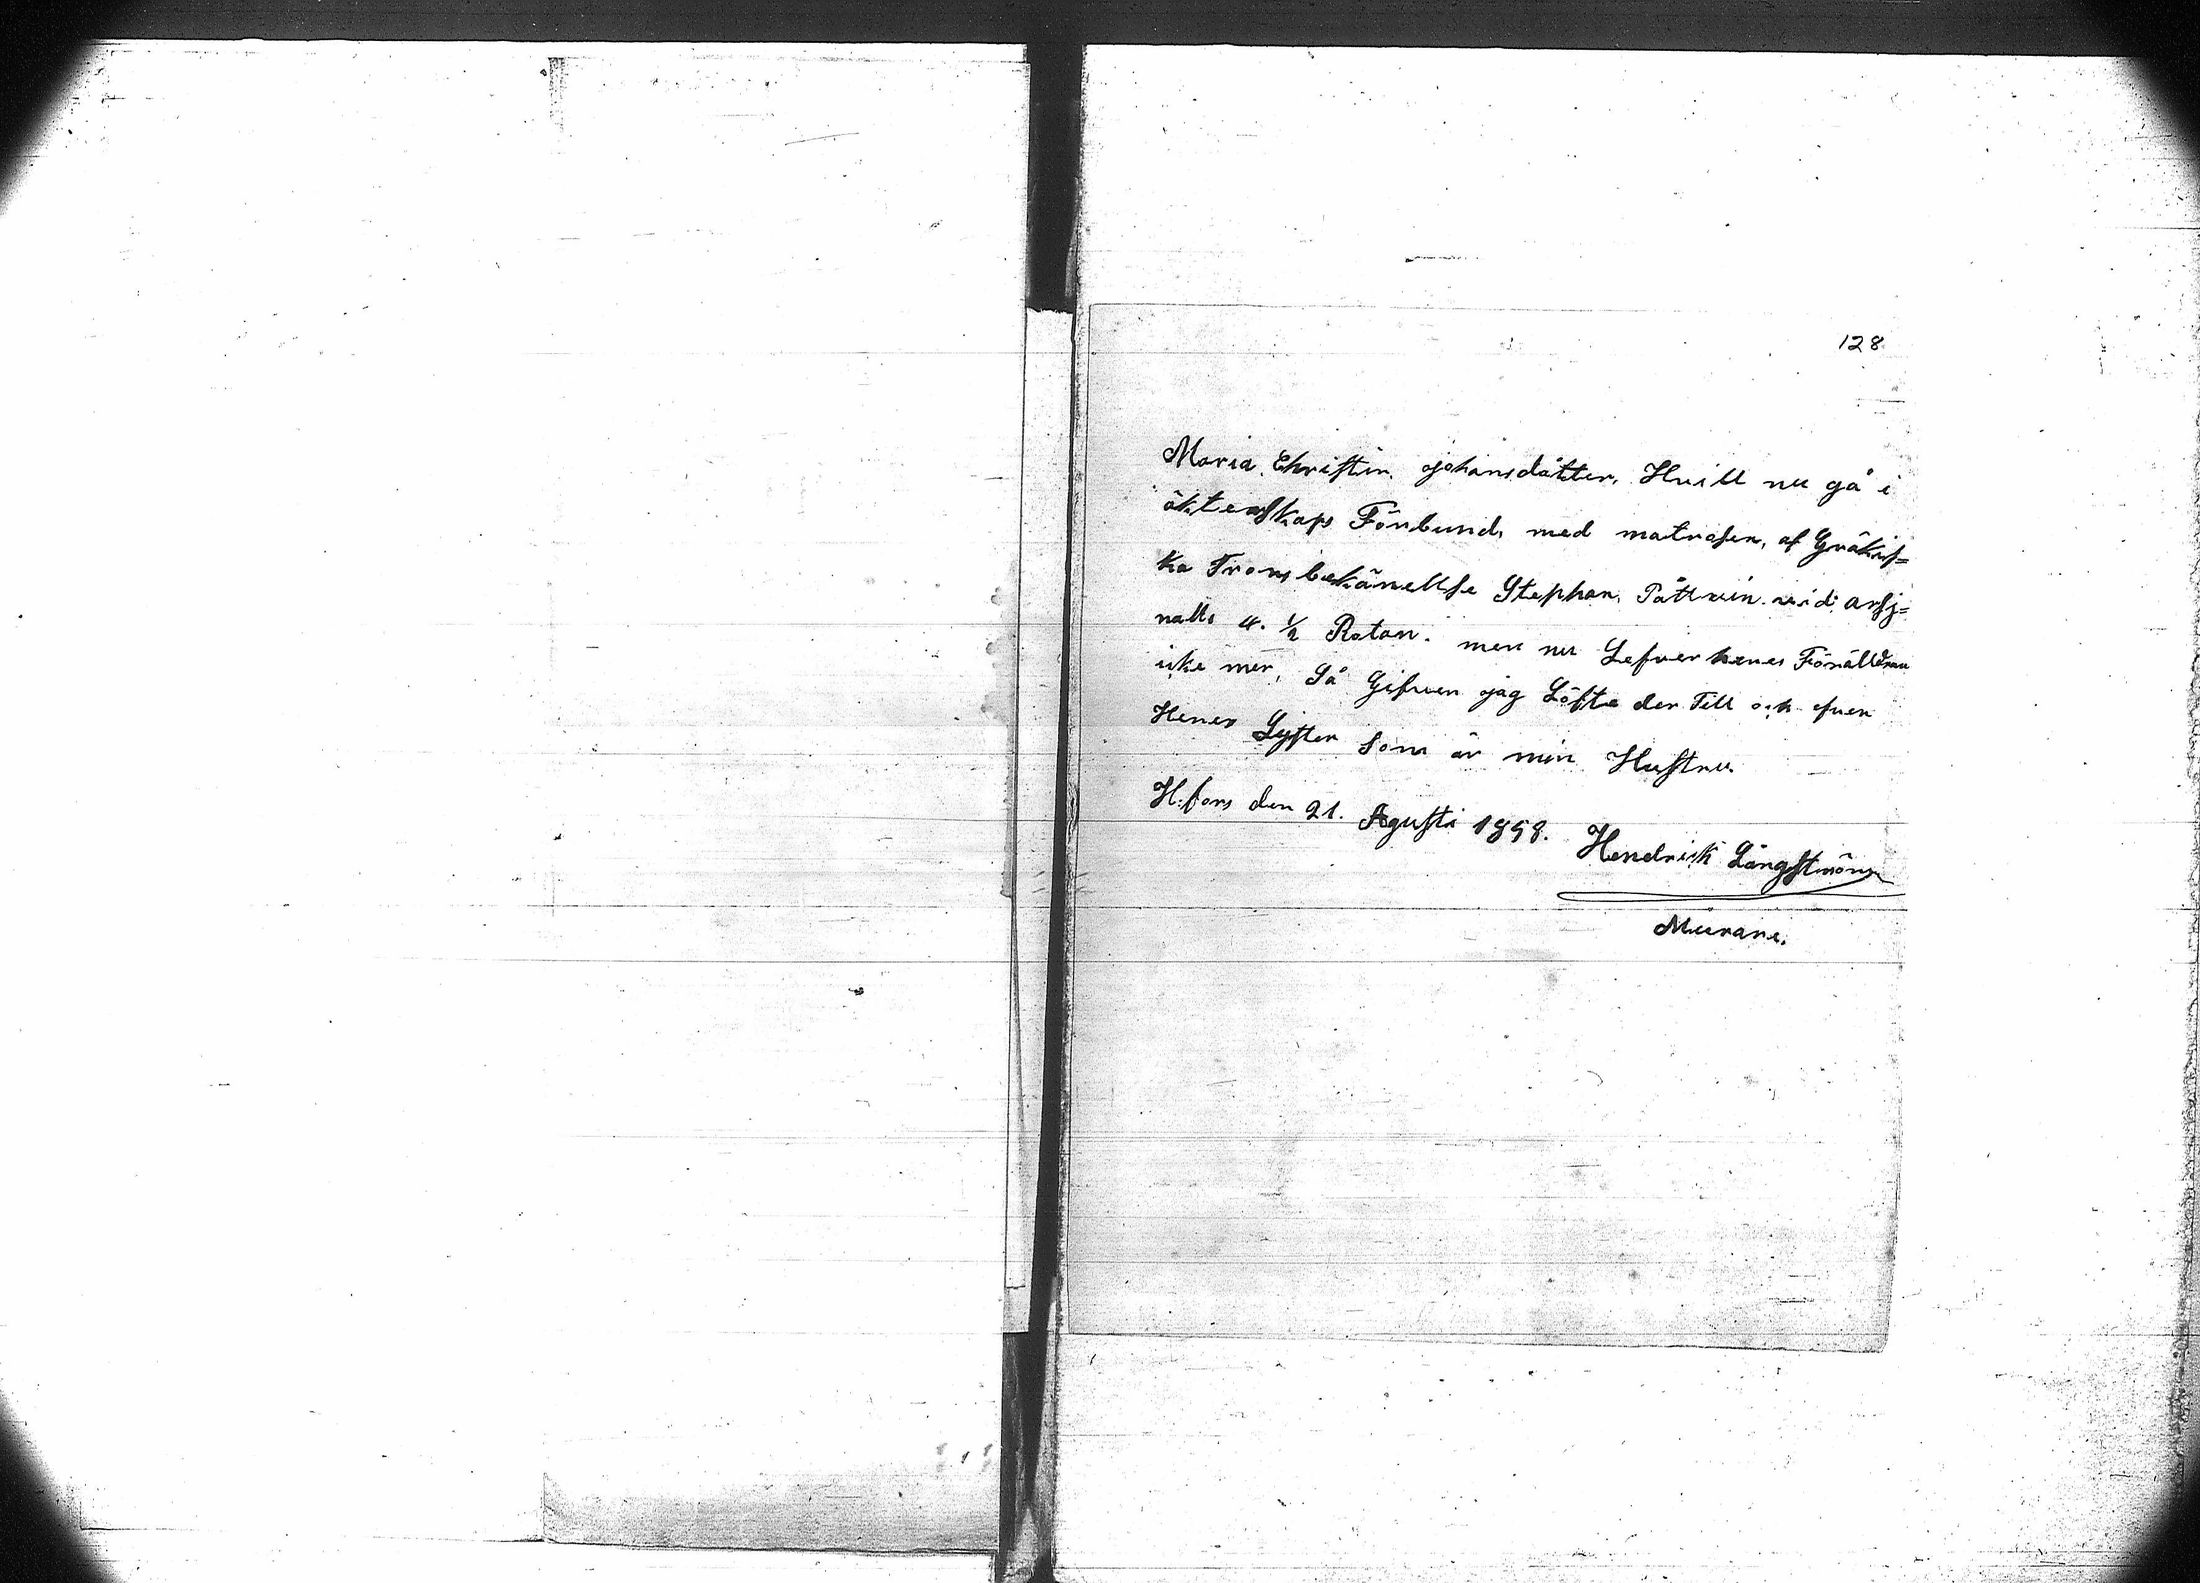 128
Maria Christin. johansdåtter, Hvill nu gå i
äktenskaps Förbund, med matrosen, af Gräkis=
ka Trons bekänellse Stephan, Påttrin. vid. arsj=
nalls 4. 1/2 Rotan. men nu Lefver henes Förälldrar
icke mer, Så Gifver jag Löfte der Till och efven
Henes Syster som är min Hustru.
H:fors den 21. Agusti 1858.
Hendrick Långström
Murare.